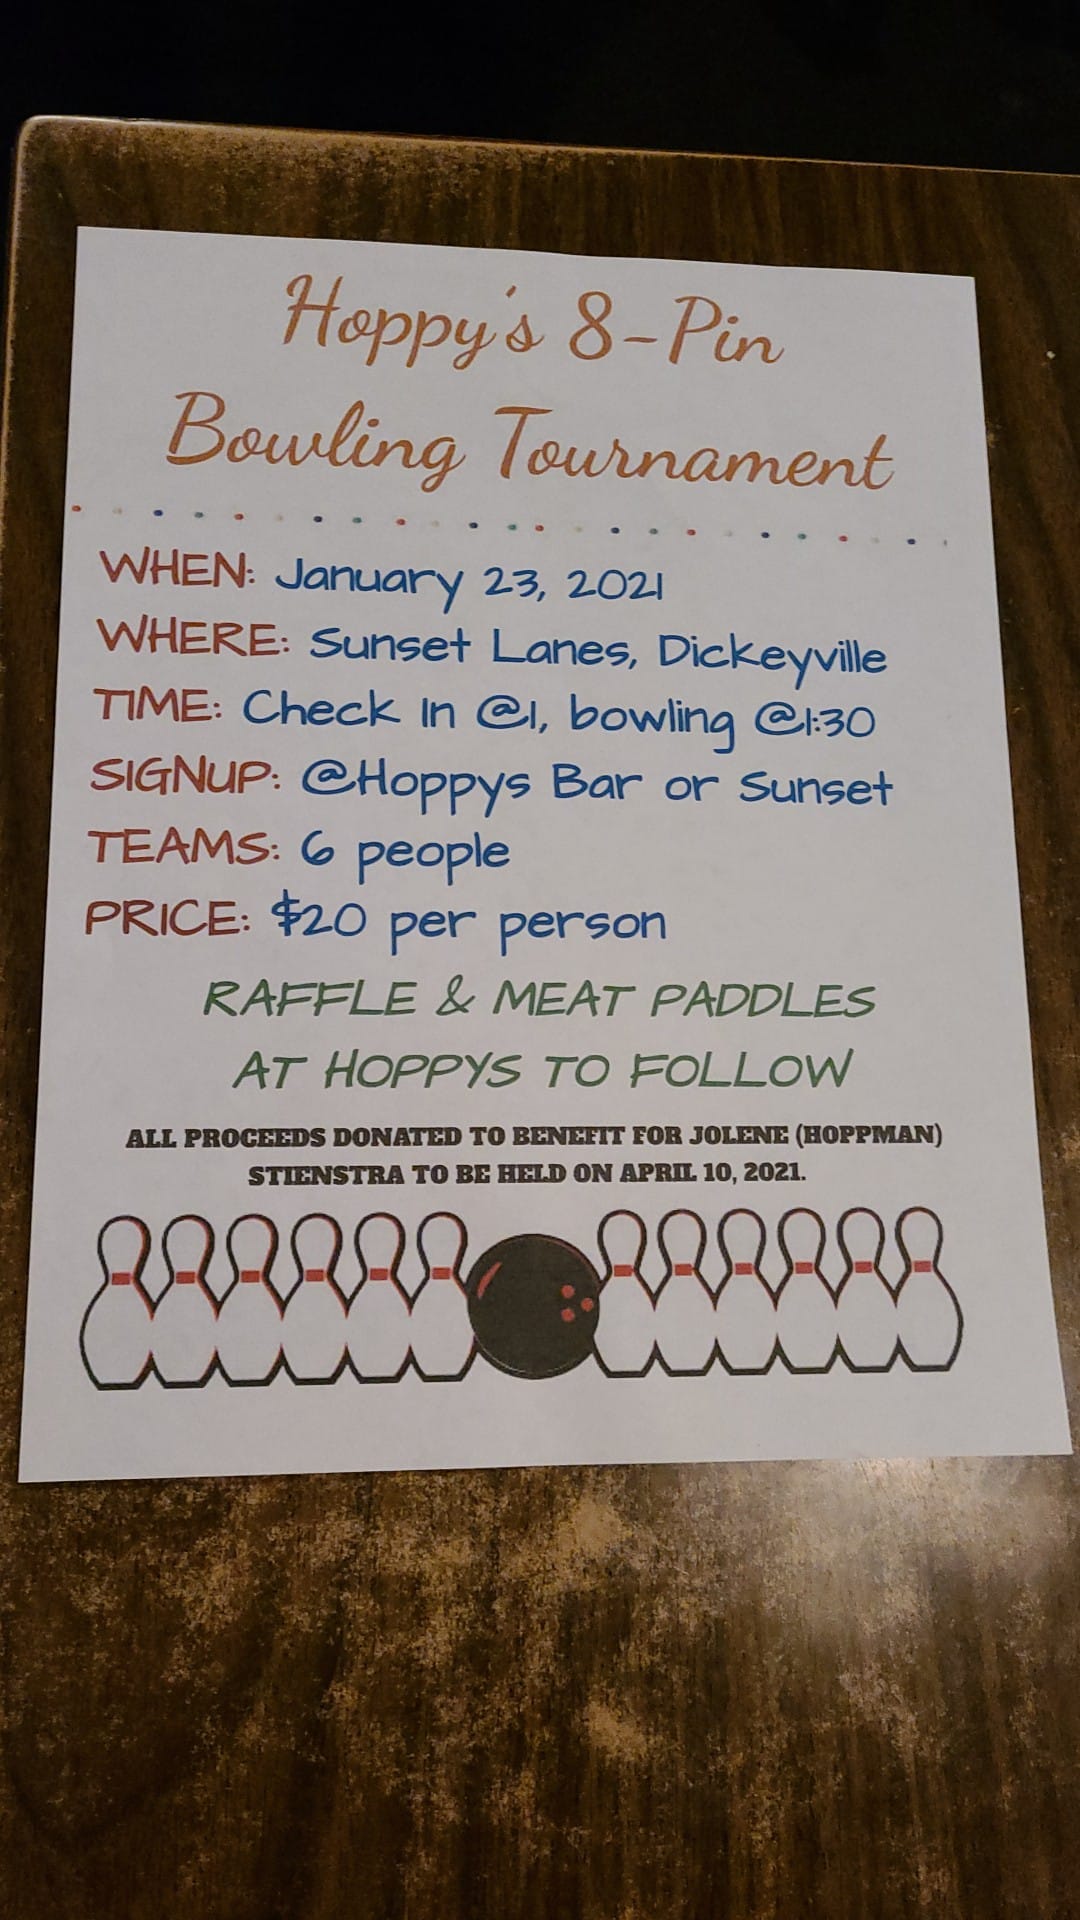 Hoppy's 8-Pin
Bowling Tournament
WHEN: January 23, 2021
WHERE: Sunset Lanes, Dickeyville
TIME: Check In @1, bowling @1:30
SIGNUP: @Hoppys Bar or Sunset
TEAMS: 6 people
PRICE: $20 per person
RAFFLE & MEAT PADDLES
AT HOPPYS TO FOLLOW
ALL PROCEEDS DONATED TO BENEFIT FOR JOLENE (HOPPMAN)
STIENSTRA TO BE HELD ON APRIL 10, 2021.